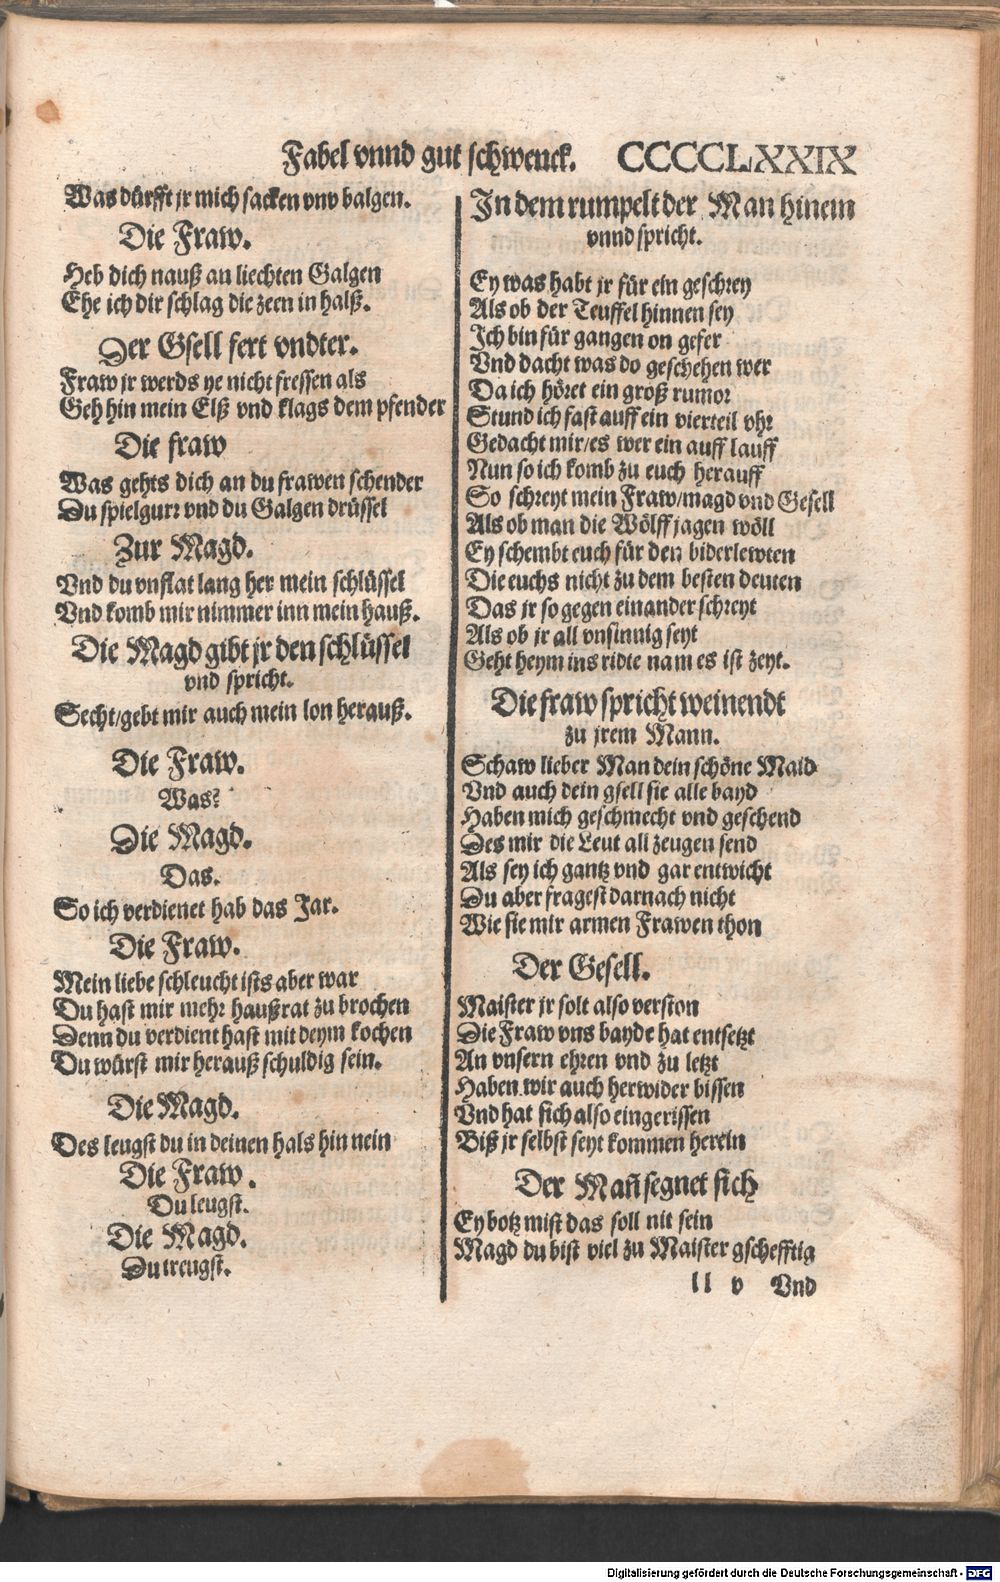 Fabel vnnd gut schwenck. CCCCCLXXIX
Was dürfft jr mich sacken vnd balgen.
Die Fraw.
Heb dich nauß an liechten Galgen
Ehe ich dir schlag die zeen in halß.
Der Gsell fert vndter.
Fraw jr werds ye nicht fressen als
Geh hin mein Elß vnd klags dem pfender
Die fraw
Was gehts dich an du frawen schender
Du spielgurr vnd du Galgen drüssel
Zur Magd.
Vnd du vnflat lang her mein schlüssel
Vnd komb mir nimmer inn mein hauß.
Die Magd gibt jr den schlüssel
vnd spricht.
Secht/gebt mir auch mein lon herauß.
Die Fraw.
Was?
Die Magd.
Das.
So ich verdienet hab das Jar.
Die Fraw.
Mein liebe schleucht ists aber war
Du hast mir mehr haußrat zu brochen
Denn du verdient hast mit deym kochen
Du würst mir herauß schuldig sein.
Die Magd.
Des leugst du in deinen hals hin nein
Die Fraw.
Du leugst.
Die Magd.
Du treugst.
In dem rumpelt der Man hinein
vnnd spricht.
Ey was habt jr für ein geschrey
Als ob der Teuffel hinnen sey
Ich bin für gangen on gefer
Vnd dacht was do geschehen wer
Da ich höret ein groß rumor
Stund ich fast auff ein vierteil vhr
Gedacht mir/es wer ein auff lauff
Nun so ich komb zu euch herauff
So schreyt mein Fraw/magd vnd Gesell
Als ob man die Wölff jagen wöll
Ey schembt euch für den biderlewten
Die euchs nicht zu dem besten deuten
Das jr so gegen einander schreyt
Als ob jr all vnsinnig seyt
Geht heym ins ridte nam es ist zeyt.
Die fraw spricht weinendt
zu jrem Mann.
Schaw lieber Man dein schöne Maid
Vnd auch dein gsell sie alle bayd
Haben mich geschmecht vnd geschend
Des mir die Leut all zeugen send
Als sey ich gantz vnd gar entwicht
Du aber fragest darnach nicht
Wie sie mir armen Frawen thon
Der Gesell.
Maister jr solt also verston
Die Fraw vns bayde hat entsetzt
An vnsern ehren vnd zu letzt
Haben wir auch herwider bissen
Vnd hat sich also eingerissen
Biß jr selbst seyt kommen herein
Der Mañ segnet sich
Ey botz mist das soll nit sein
Magd du bist viel zu Maister gschefftig
ll v Vnd
Digitalisierung gefördert durch die Deutsche Forschungsgemeinschaft - DFG